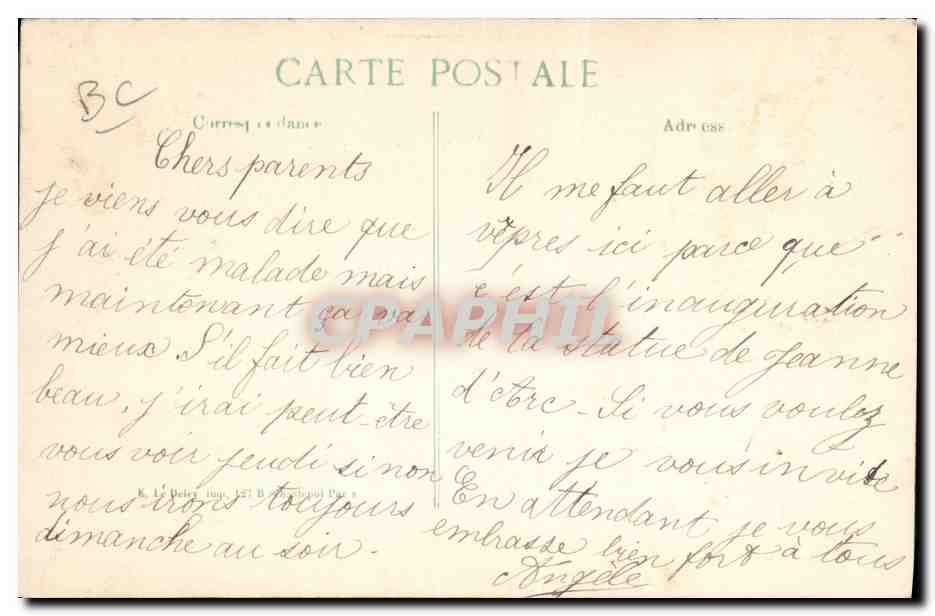 CARTE POSTALE
BC
Correspondance
Chers parents
je viens vous dire que
j'ai été malade mais
maintenant ça va
mieux. S'il fait bien
beau, j'irai peut-être
vous voir jeudi si non
nous irons toujours
dimanche au soir.
E. Le Deley, imp., 127 B
Adresse
Il me faut aller à
vêpres ici parce que
c'est l'inauguration
de la statue de Jeanne
d'Arc - Si vous voulez
venir je vous invite
En attendant je vous
embrasse bien fort à tous
Angèle
CPAPHIL